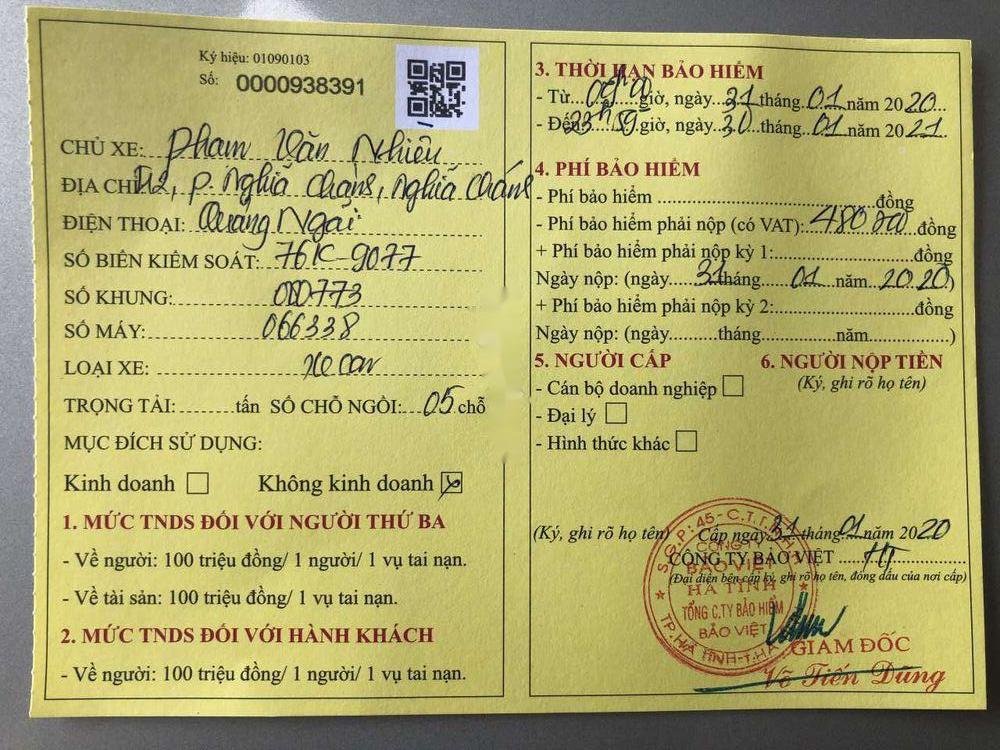 Ký hiệu: 01090103
Số: 0000938391
CHỦ XE: Phạm Văn Nhiêu
ĐỊA CHỈ: T12, P. Nghĩa Chánh, Nghĩa Chánh
ĐIỆN THOẠI: Quảng Ngãi
SỐ BIỂN KIỂM SOÁT: 76K-9077
SỐ KHUNG: 000773
SỐ MÁY: 066338
LOẠI XE: xe con
TRỌNG TẢI:.........tấn SỐ CHỖ NGỒI: 05 chỗ
MỤC ĐÍCH SỬ DỤNG:
Kinh doanh ☐ Không kinh doanh ☒
1. MỨC TNDS ĐỐI VỚI NGƯỜI THỨ BA
- Về người: 100 triệu đồng/ 1 người/ 1 vụ tai nạn.
- Về tài sản: 100 triệu đồng/ 1 vụ tai nạn.
2. MỨC TNDS ĐỐI VỚI HÀNH KHÁCH
- Về người: 100 triệu đồng/ 1 người/ 1 vụ tai nạn.
3. THỜI HẠN BẢO HIỂM
- Từ giờ, ngày 31 tháng 01 năm 2020
- Đến 23h59 giờ, ngày 30 tháng 01 năm 2021
4. PHÍ BẢO HIỂM
- Phí bảo hiểm ........................ đồng
- Phí bảo hiểm phải nộp (có VAT): đồng
+ Phí bảo hiểm phải nộp kỳ 1:........................đồng
Ngày nộp: (ngày 31 tháng 01 năm 2020)
+ Phí bảo hiểm phải nộp kỳ 2:........................đồng
Ngày nộp: (ngày.........tháng............năm...............)
5. NGƯỜI CẤP
- Cán bộ doanh nghiệp ☐
- Đại lý ☐
- Hình thức khác ☐
6. NGƯỜI NỘP TIỀN
(Ký, ghi rõ họ tên)
(Ký, ghi rõ họ tên)
Cấp ngày 31 tháng 01 năm 2020
CÔNG TY BẢO VIỆT HT
(Đại diện bên cấp ký, ghi rõ họ tên, đóng dấu của nơi cấp)
CÔNG TY
BẢO VIỆT
HÀ TĨNH
TỔNG C.TY BẢO HIỂM
BẢO VIỆT
GIÁM ĐỐC
Võ Tiến Dũng